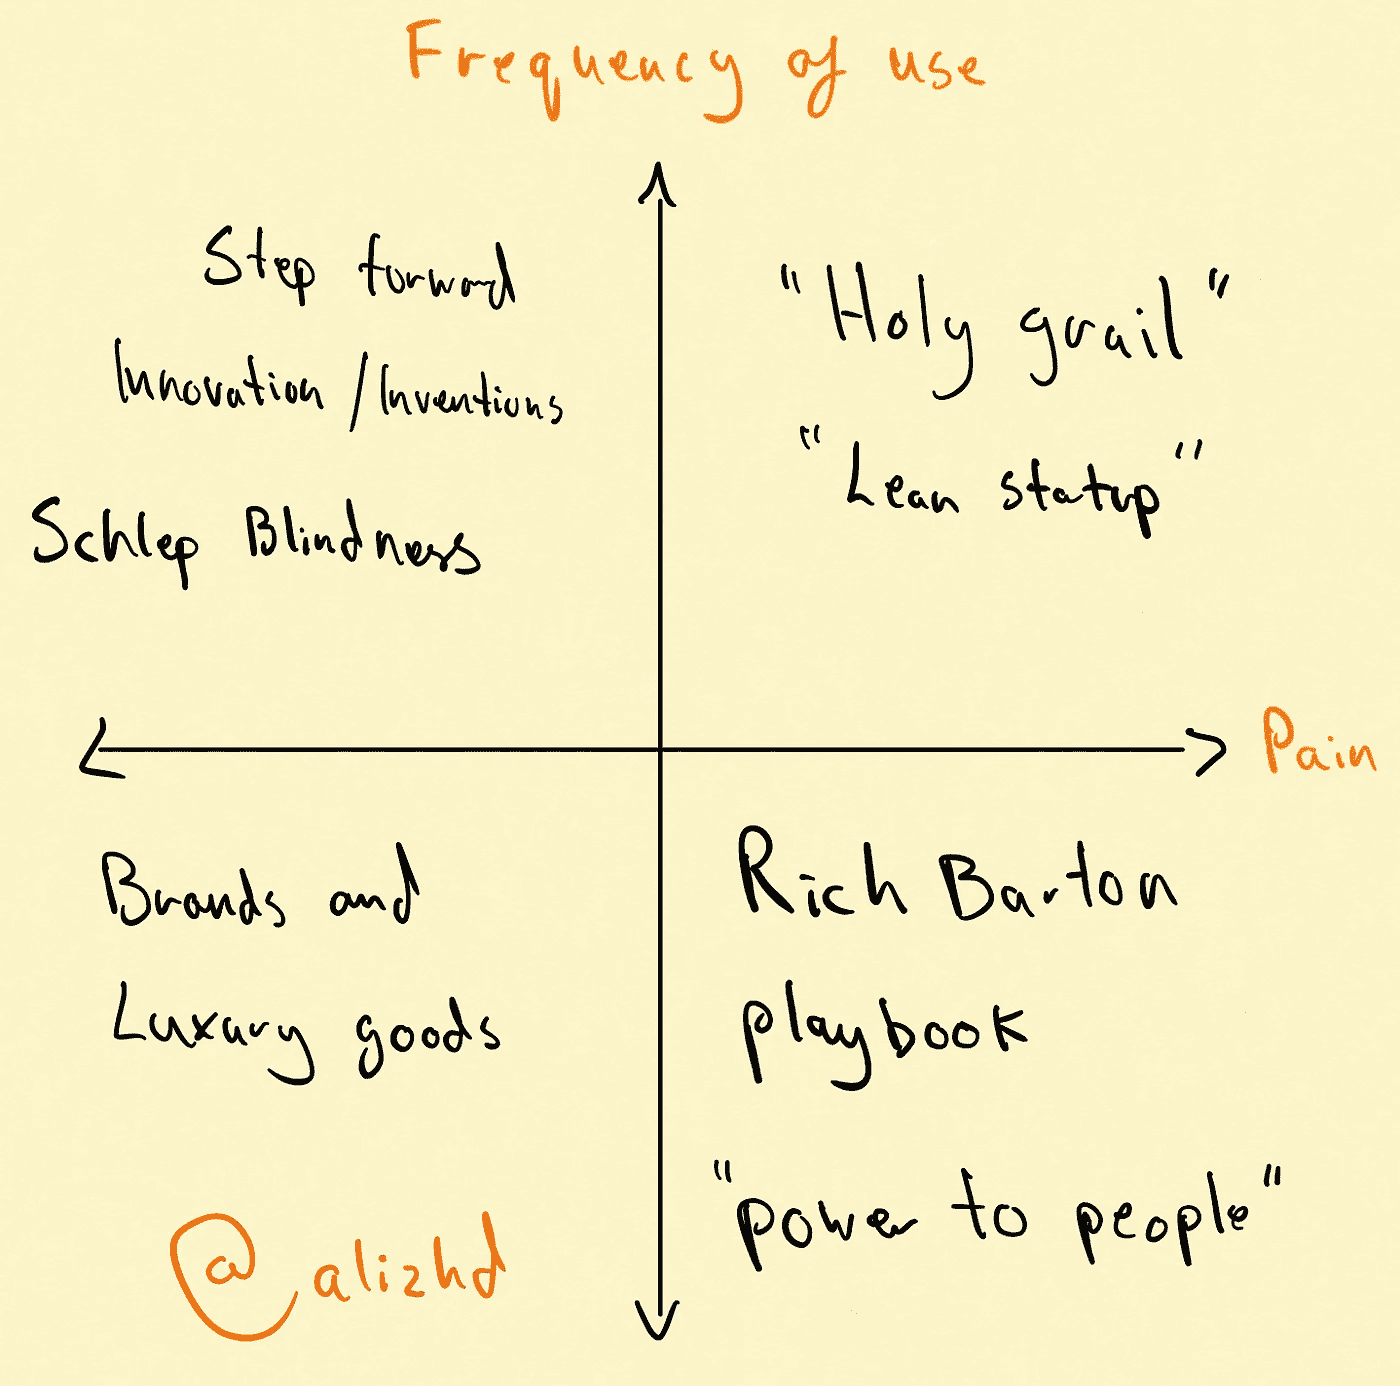 Frequency of use
Step forward
Innovation / Inventions
Schlep Blindness
"Holy grail"
"Lean statup"
Pain
Brands and
Luxury goods
Rich Barton
playbook
"power to people"
@alizhd